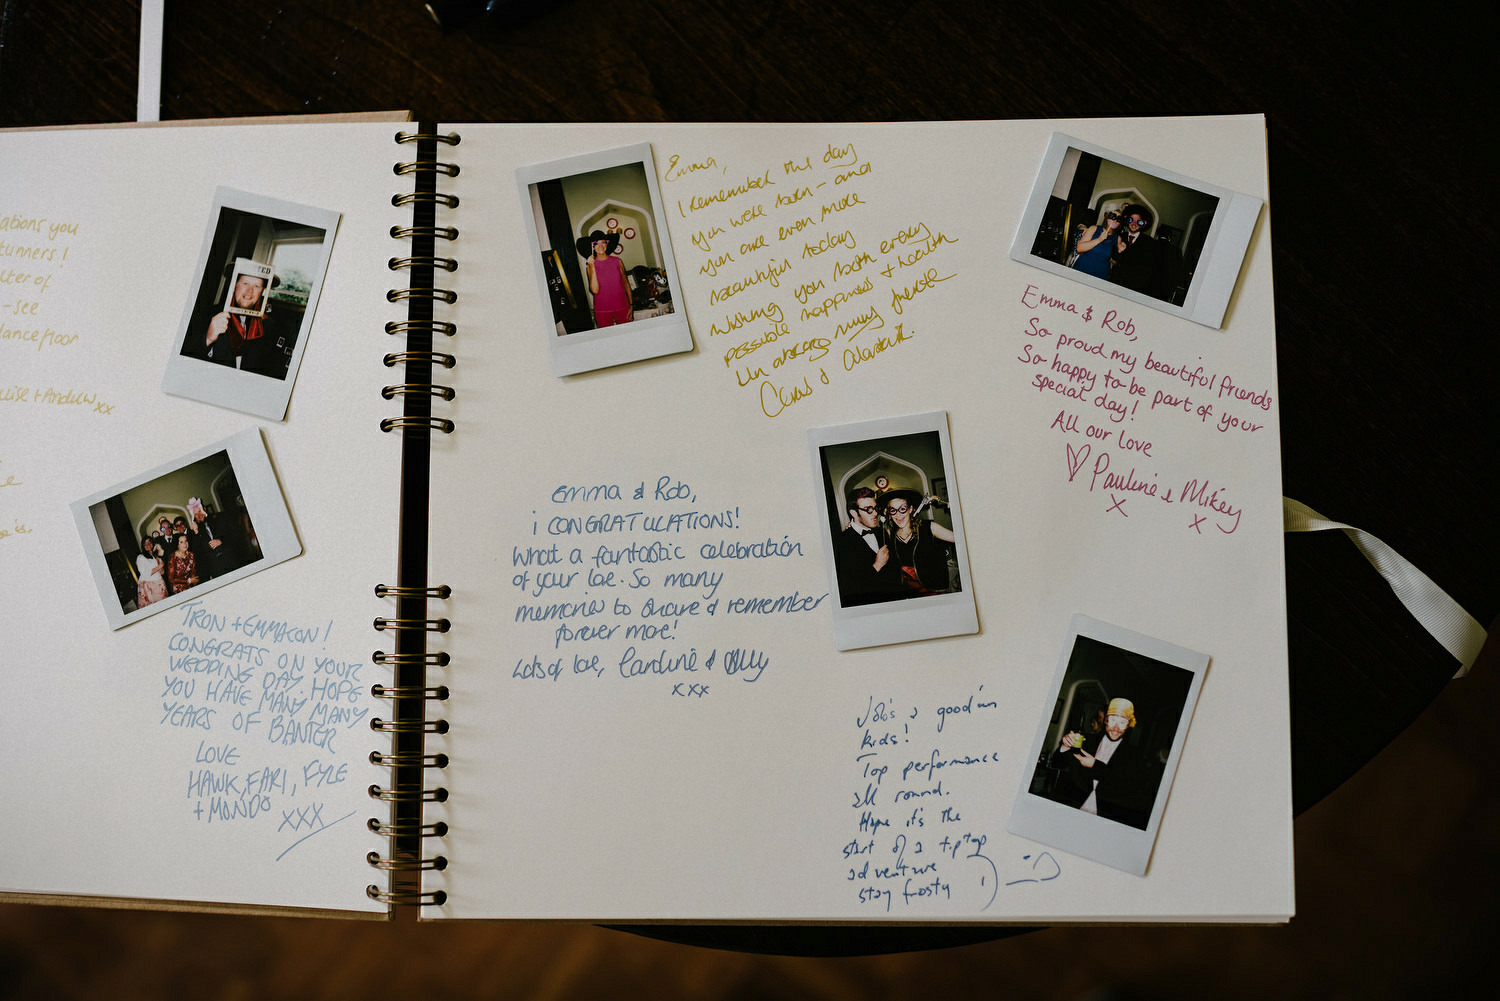 ations you
tunners!
- see
dancefloor
+ Andrew xx
TRON + EMMACON!
CONGRATS ON YOUR
WEDDING DAY. HOPE
YOU HAVE MANY, MANY
YEARS OF BANTER
LOVE
HAWK, FARI, FYLE
+ MONDO XXX
Emma,
I remember the day
you were born - and
you are even more
beautiful today
Wishing you both every
possible happiness + health
Un abrazo muy fuerte
& Alastair.
Emma & Rob,
So proud my beautiful friends
So happy to be part of your
special day!
All our love
Pauline & Mikey
x x
Emma & Rob,
¡ CONGRATULATIONS!
What a fantastic celebration
of your love. So many
memories to share & remember
forever more!
Lots of love, Caroline & Olly
xxx
& good'un
kids!
Top performance
all round.
Hope it's the
start of a tip top
adventure
stay frosty